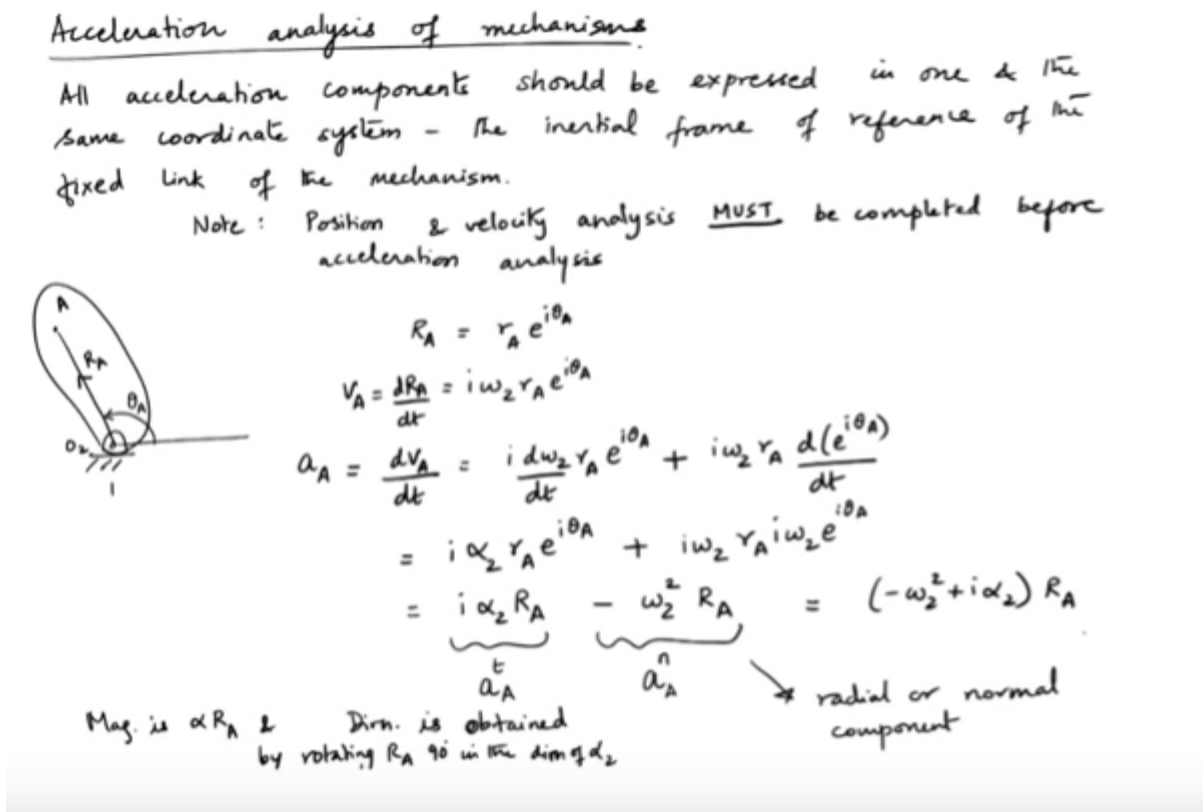 Acceleration analysis of mechanisms.
All acceleration components should be expressed in one & the
same coordinate system - the inertial frame of reference of the
fixed link of the mechanism.
Note : Position & velocity analysis MUST be completed before
acceleration analysis
A
R_A
θ_A
O₂
1
R_A = r_A e^{iθ_A}
V_A = dR_A/dt = iω₂ r_A e^{iθ_A}
a_A = dV_A/dt = i dω₂/dt r_A e^{iθ_A} + iω₂ r_A d(e^{iθ_A})/dt
= i α₂ r_A e^{iθ_A} + iω₂ r_A iω₂ e^{iθ_A}
= i α₂ R_A - ω₂² R_A = (-ω₂² + iα₂) R_A
a_A^t a_A^n radial or normal
component
Mag. is αR_A & Dirn. is obtained
by rotating R_A 90° in the dirn of α₂